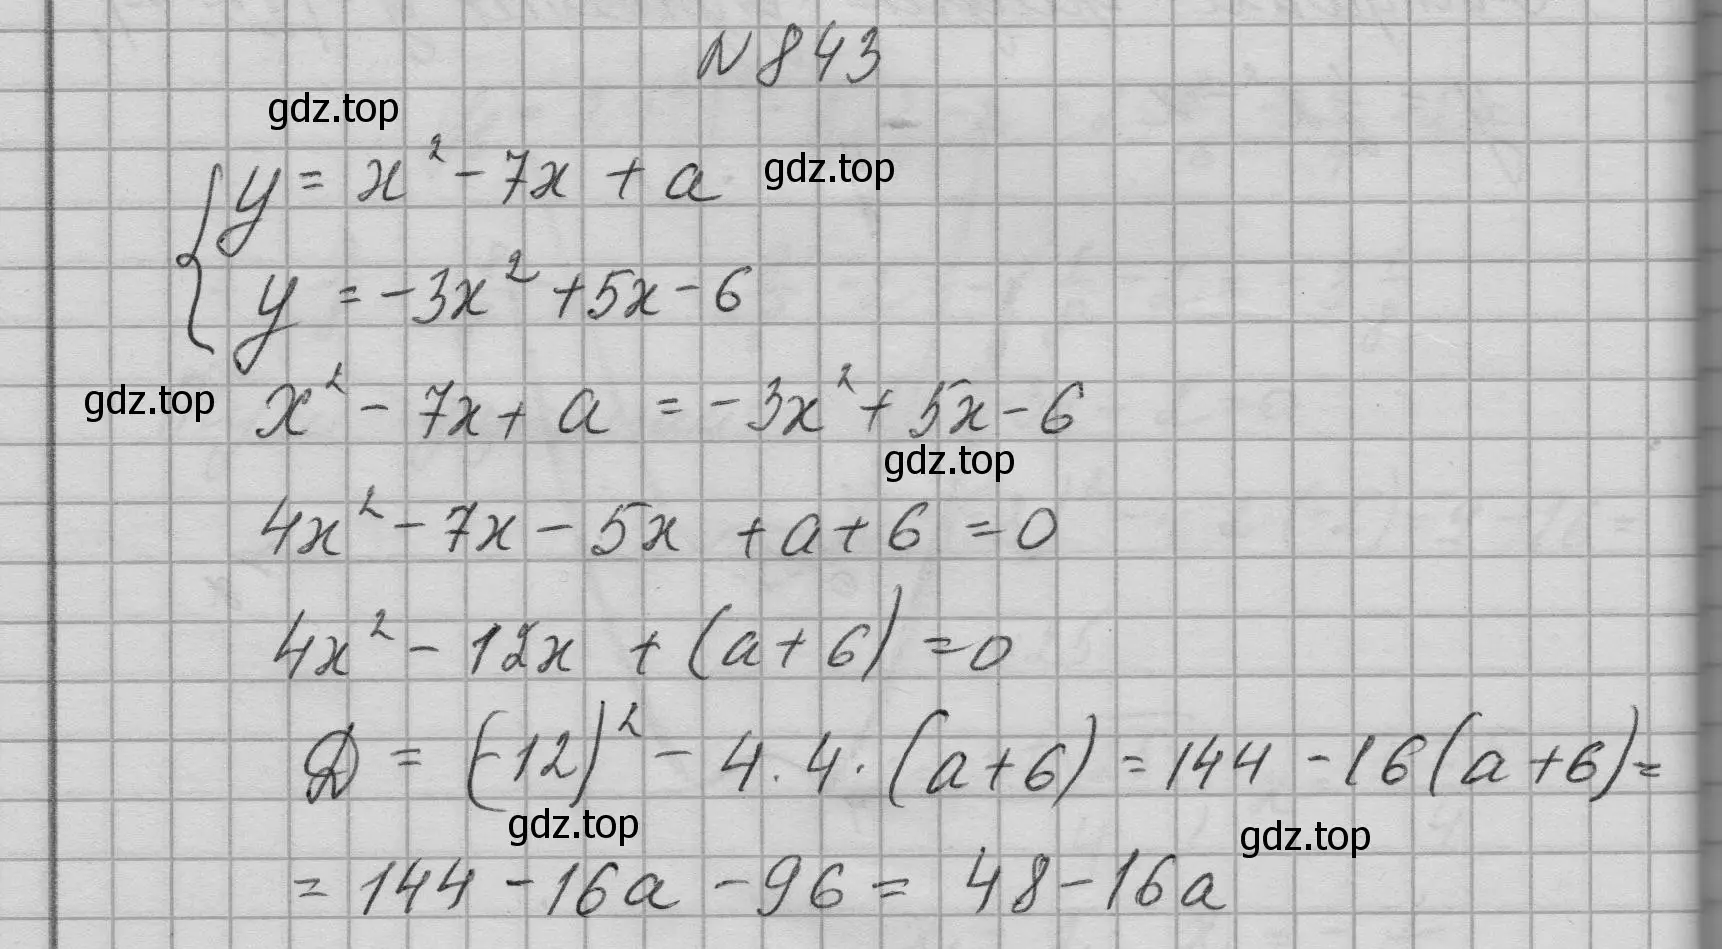 N 843
gdz.top
{ y = x² - 7x + a gdz.top
y = -3x² + 5x - 6
gdz.top x² - 7x + a = -3x² + 5x - 6
gdz.top
4x² - 7x - 5x + a + 6 = 0
4x² - 12x + (a + 6) = 0
D = (-12)² - 4 · 4 · (a + 6) = 144 - 16(a + 6) =
gdz.top gdz.top
= 144 - 16a - 96 = 48 - 16a